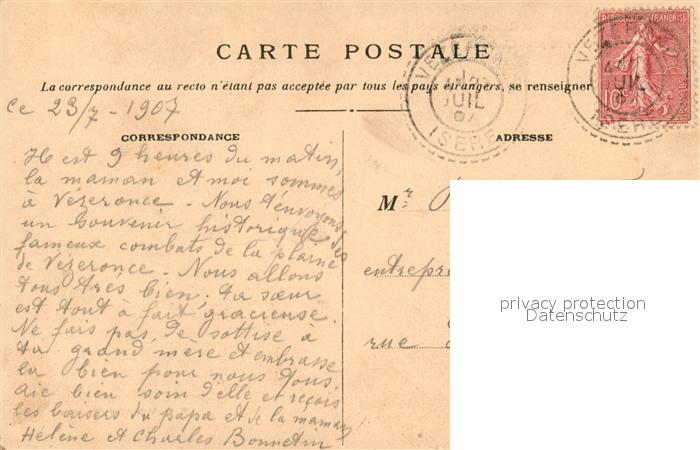 CARTE POSTALE
La correspondance au recto n'étant pas acceptée par tous les pays étrangers, se renseigner
Ce 23/7 - 1907
CORRESPONDANCE
Il est 9 heures du matin,
la maman et moi sommes
à Vézeronce - Nous t'envoyons
un souvenir historique des
fameux combats de la plaine
de Vézeronce - Nous allons
tous très bien, ta sœur
est tout à fait gracieuse.
Ne fais pas de sottise à
ta grand mère et embrasse
la bien pour nous tous.
Aie bien soin d'elle et reçois
les baisers du papa et de la maman
Hélène et Charles Bonnetin
ADRESSE
Mr
entrepr
rue
REPUBLIQUE FRANÇAISE
10c
POSTES
JUIL
07
ISERE
JUIL
ISERE
privacy protection
Datenschutz